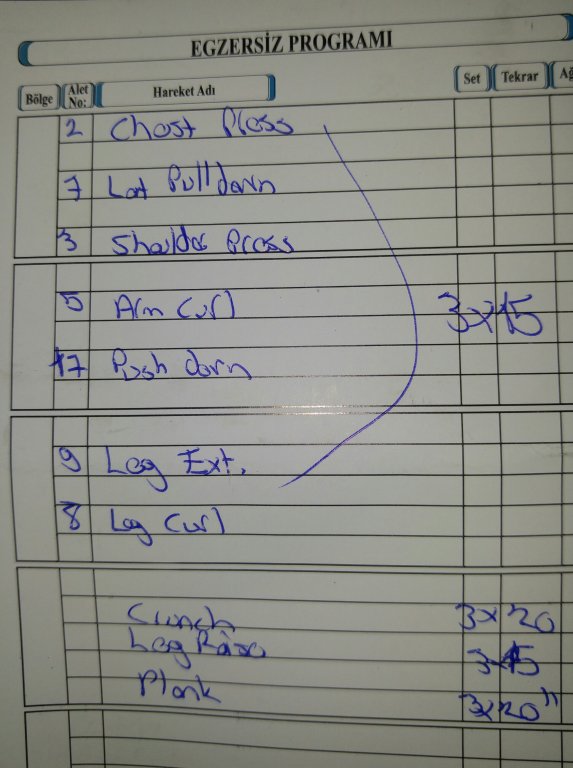 EGZERSİZ PROGRAMI
Bölge Alet No: Hareket Adı Set Tekrar Ağ
2 Chest Press
7 Lat Pull down
3 Shoulder Press
5 Arm Curl 3x15
17 Push down
9 Leg Ext.
8 Leg Curl
Crunch 3x20
Leg Raise 3x15
Plank 3x20"